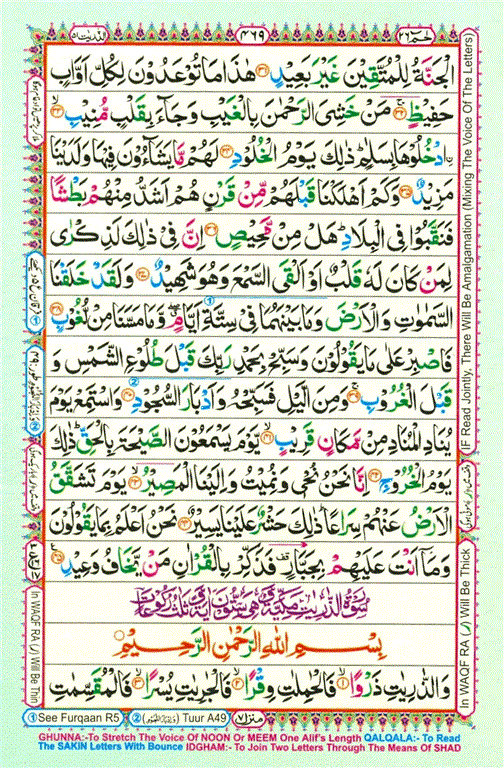 حٰمٓ ۲۶
۴۶۹
الذّٰریٰت ۵۱
الْجَنَّةُ لِلْمُتَّقِیْنَ غَیْرَ بَعِیْدٍ ﴿۳۱﴾ هٰذَا مَا تُوْعَدُوْنَ لِكُلِّ اَوَّابٍ
حَفِیْظٍ ﴿۳۲﴾ مَنْ خَشِیَ الرَّحْمٰنَ بِالْغَیْبِ وَجَآءَ بِقَلْبٍ مُّنِیْبِ ﴿۳۳﴾
ۙن ادْخُلُوْهَا بِسَلٰمٍ ؕ ذٰلِكَ یَوْمُ الْخُلُوْدِ ﴿۳۴﴾ لَهُمْ مَّا یَشَآءُوْنَ فِیْهَا وَلَدَیْنَا
مَزِیْدٌ ﴿۳۵﴾ وَكَمْ اَهْلَكْنَا قَبْلَهُمْ مِّنْ قَرْنٍ هُمْ اَشَدُّ مِنْهُمْ بَطْشًا
فَنَقَّبُوْا فِی الْبِلَادِ ؕ هَلْ مِنْ مَّحِیْصٍ ﴿۳۶﴾ اِنَّ فِیْ ذٰلِكَ لَذِكْرٰی
لِمَنْ كَانَ لَهٗ قَلْبٌ اَوْ اَلْقَی السَّمْعَ وَهُوَ شَهِیْدٌ ﴿۳۷﴾ وَلَقَدْ خَلَقْنَا
السَّمٰوٰتِ وَالْاَرْضَ وَمَا بَیْنَهُمَا فِیْ سِتَّةِ اَیَّامٍ ۖ وَّمَا مَسَّنَا مِنْ لُّغُوْبٍ ﴿۳۸﴾
فَاصْبِرْ عَلٰی مَا یَقُوْلُوْنَ وَسَبِّحْ بِحَمْدِ رَبِّكَ قَبْلَ طُلُوْعِ الشَّمْسِ وَ
قَبْلَ الْغُرُوْبِ ﴿۳۹﴾ وَمِنَ الَّیْلِ فَسَبِّحْهُ وَاَدْبَارَ السُّجُوْدِ ﴿۴۰﴾ وَاسْتَمِعْ یَوْمَ
یُنَادِ الْمُنَادِ مِنْ مَّكَانٍ قَرِیْبٍ ﴿۴۱﴾ یَّوْمَ یَسْمَعُوْنَ الصَّیْحَةَ بِالْحَقِّ ؕ ذٰلِكَ
یَوْمُ الْخُرُوْجِ ﴿۴۲﴾ اِنَّا نَحْنُ نُحْیٖ وَنُمِیْتُ وَاِلَیْنَا الْمَصِیْرُ ﴿۴۳﴾ یَوْمَ تَشَقَّقُ
الْاَرْضُ عَنْهُمْ سِرَاعًا ؕ ذٰلِكَ حَشْرٌ عَلَیْنَا یَسِیْرٌ ﴿۴۴﴾ نَحْنُ اَعْلَمُ بِمَا یَقُوْلُوْنَ
وَمَاۤ اَنْتَ عَلَیْهِمْ بِجَبَّارٍ فَذَكِّرْ بِالْقُرْاٰنِ مَنْ یَّخَافُ وَعِیْدِ ﴿۴۵﴾
سُوْرَةُ الذّٰرِیٰتِ مَكِّیَّةٌ وَّهِیَ سِتُّوْنَ اٰیَةً وَّثَلٰثُ رُكُوْعَاتٍ
بِسْمِ اللّٰهِ الرَّحْمٰنِ الرَّحِیْمِ
وَالذّٰرِیٰتِ ذَرْوًا ﴿۱﴾ فَالْحٰمِلٰتِ وِقْرًا ﴿۲﴾ فَالْجٰرِیٰتِ یُسْرًا ﴿۳﴾ فَالْمُقَسِّمٰتِ
① See Furqaan R5 ② Tuur A49
منزل ۷
GHUNNA:-To Stretch The Voice Of NOON Or MEEM One Alif's Length QALQALA:- To Read
The SAKIN Letters With Bounce IDGHAM:- To Join Two Letters Through The Means Of SHAD
(IF Read Jointly, There Will Be Amalgamation (Mixing The Voice Of The Letters)
In WAQF RA (ر) Will Be Thick
In WAQF RA (ر) Will Be Thin